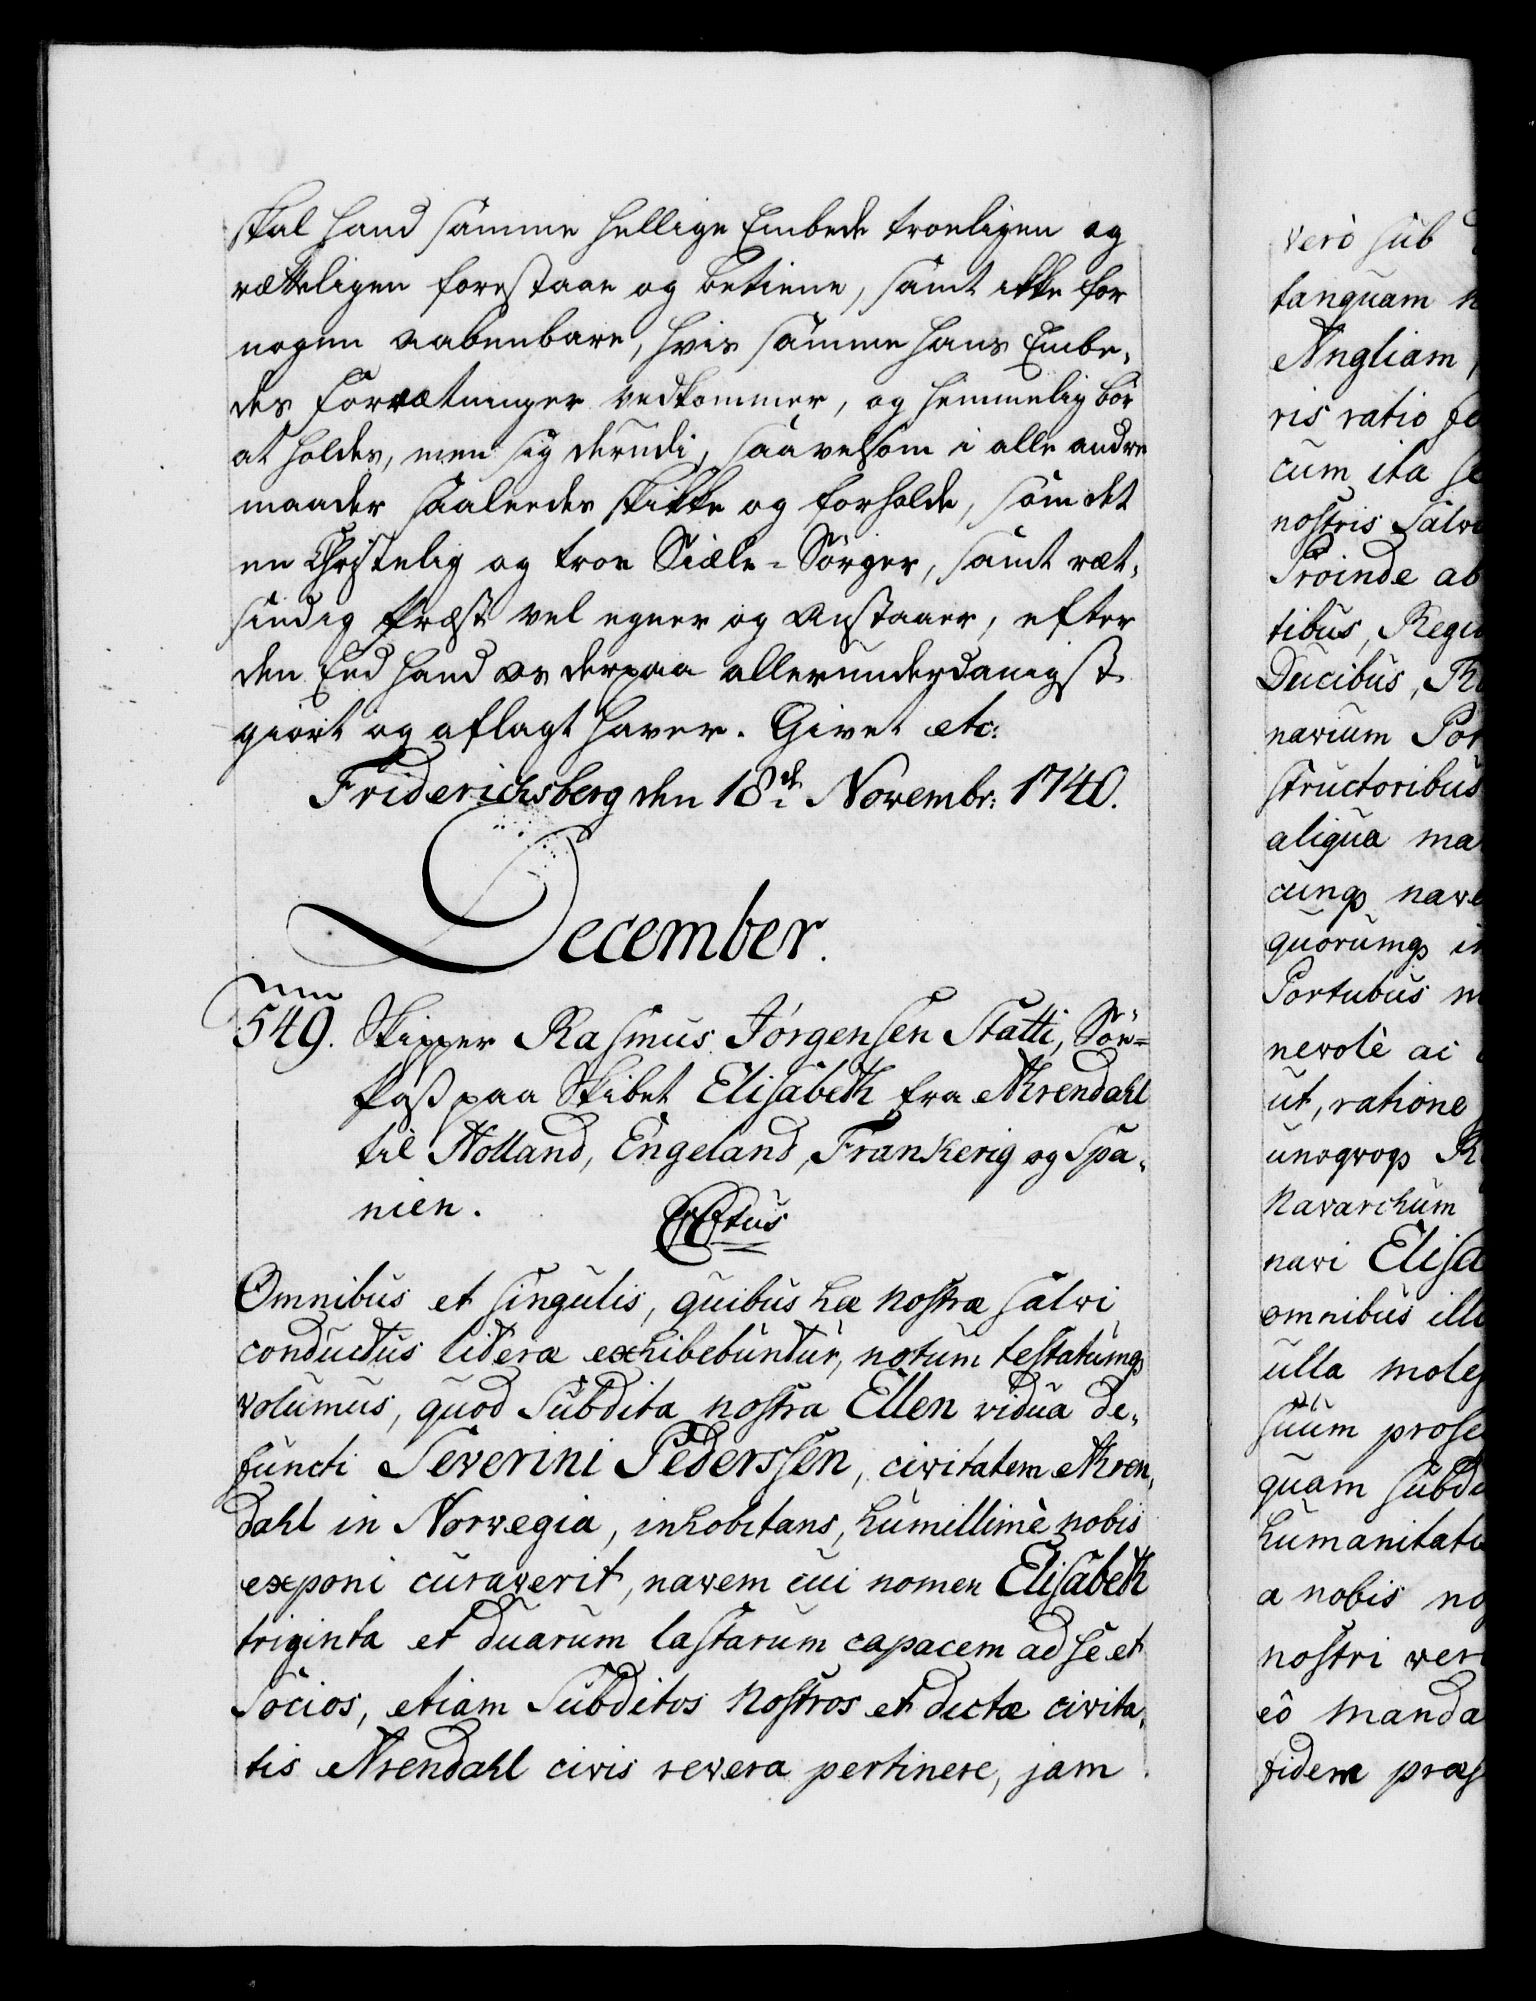 skal hand samme hellige Embede troeligen og
rætteligen forestaae og betiene, samt ikke for
nogen aabenbare, hvis samme hans Embe,
des Forrætninger vedkommer, og hemmelig bör
at holdes, men sig derudi, saavelsom i alle andre
maader saaledes skikke og forholde, som det
en Christelig og troe Siæle-Sörger, samt ret,
sindig Præst vel egner og anstaaer, efter
den Eed hand os derpaa allerunderdanigst
giort og aflagt haver. Givet etc:
Friderichsberg den 18de Novembr: 1740.
December.
549. Skipper Rasmus Jörgensen Statti, Söe=
Pass paa Skibet Elisabeth fra Ahrendahl
til Holland, Engeland, Frankerig og Spa,
nien.
Omnibus et singulis, quibus hæ nostræ salvi
conductus literæ exhibebuntur, notum testatumqz
volumus, quod Subdita nostra Ellen vidua de,
functi Severini Pederssen, civitatem Ahren,
dahl in Norvegia, inhobitans, humillimè nobis
exponi curaverit, navem cui nomen Elisabeth
triginta et duarum lastarum capacem ad se et
Socios, etiam Subditos nostros et dictæ civita,
tis Arendahl civis revera pertinere, jam
vero sub
tanquam
Angliam,
ris ratio
cum ita
nostris salvi
Proinde ab
tibus, Regi
Ducibus,
navium
structoribus
aliqua ma
cunqz nave
quorumqz
Portubus
nevolè ac
ut, ratione
unoqvoqz
Navarchum
navi Elisa
omnibus ill
ulla moles
suum prose
quam subdi
humanitati
a nobis
nostri
eô manda
fidem præs